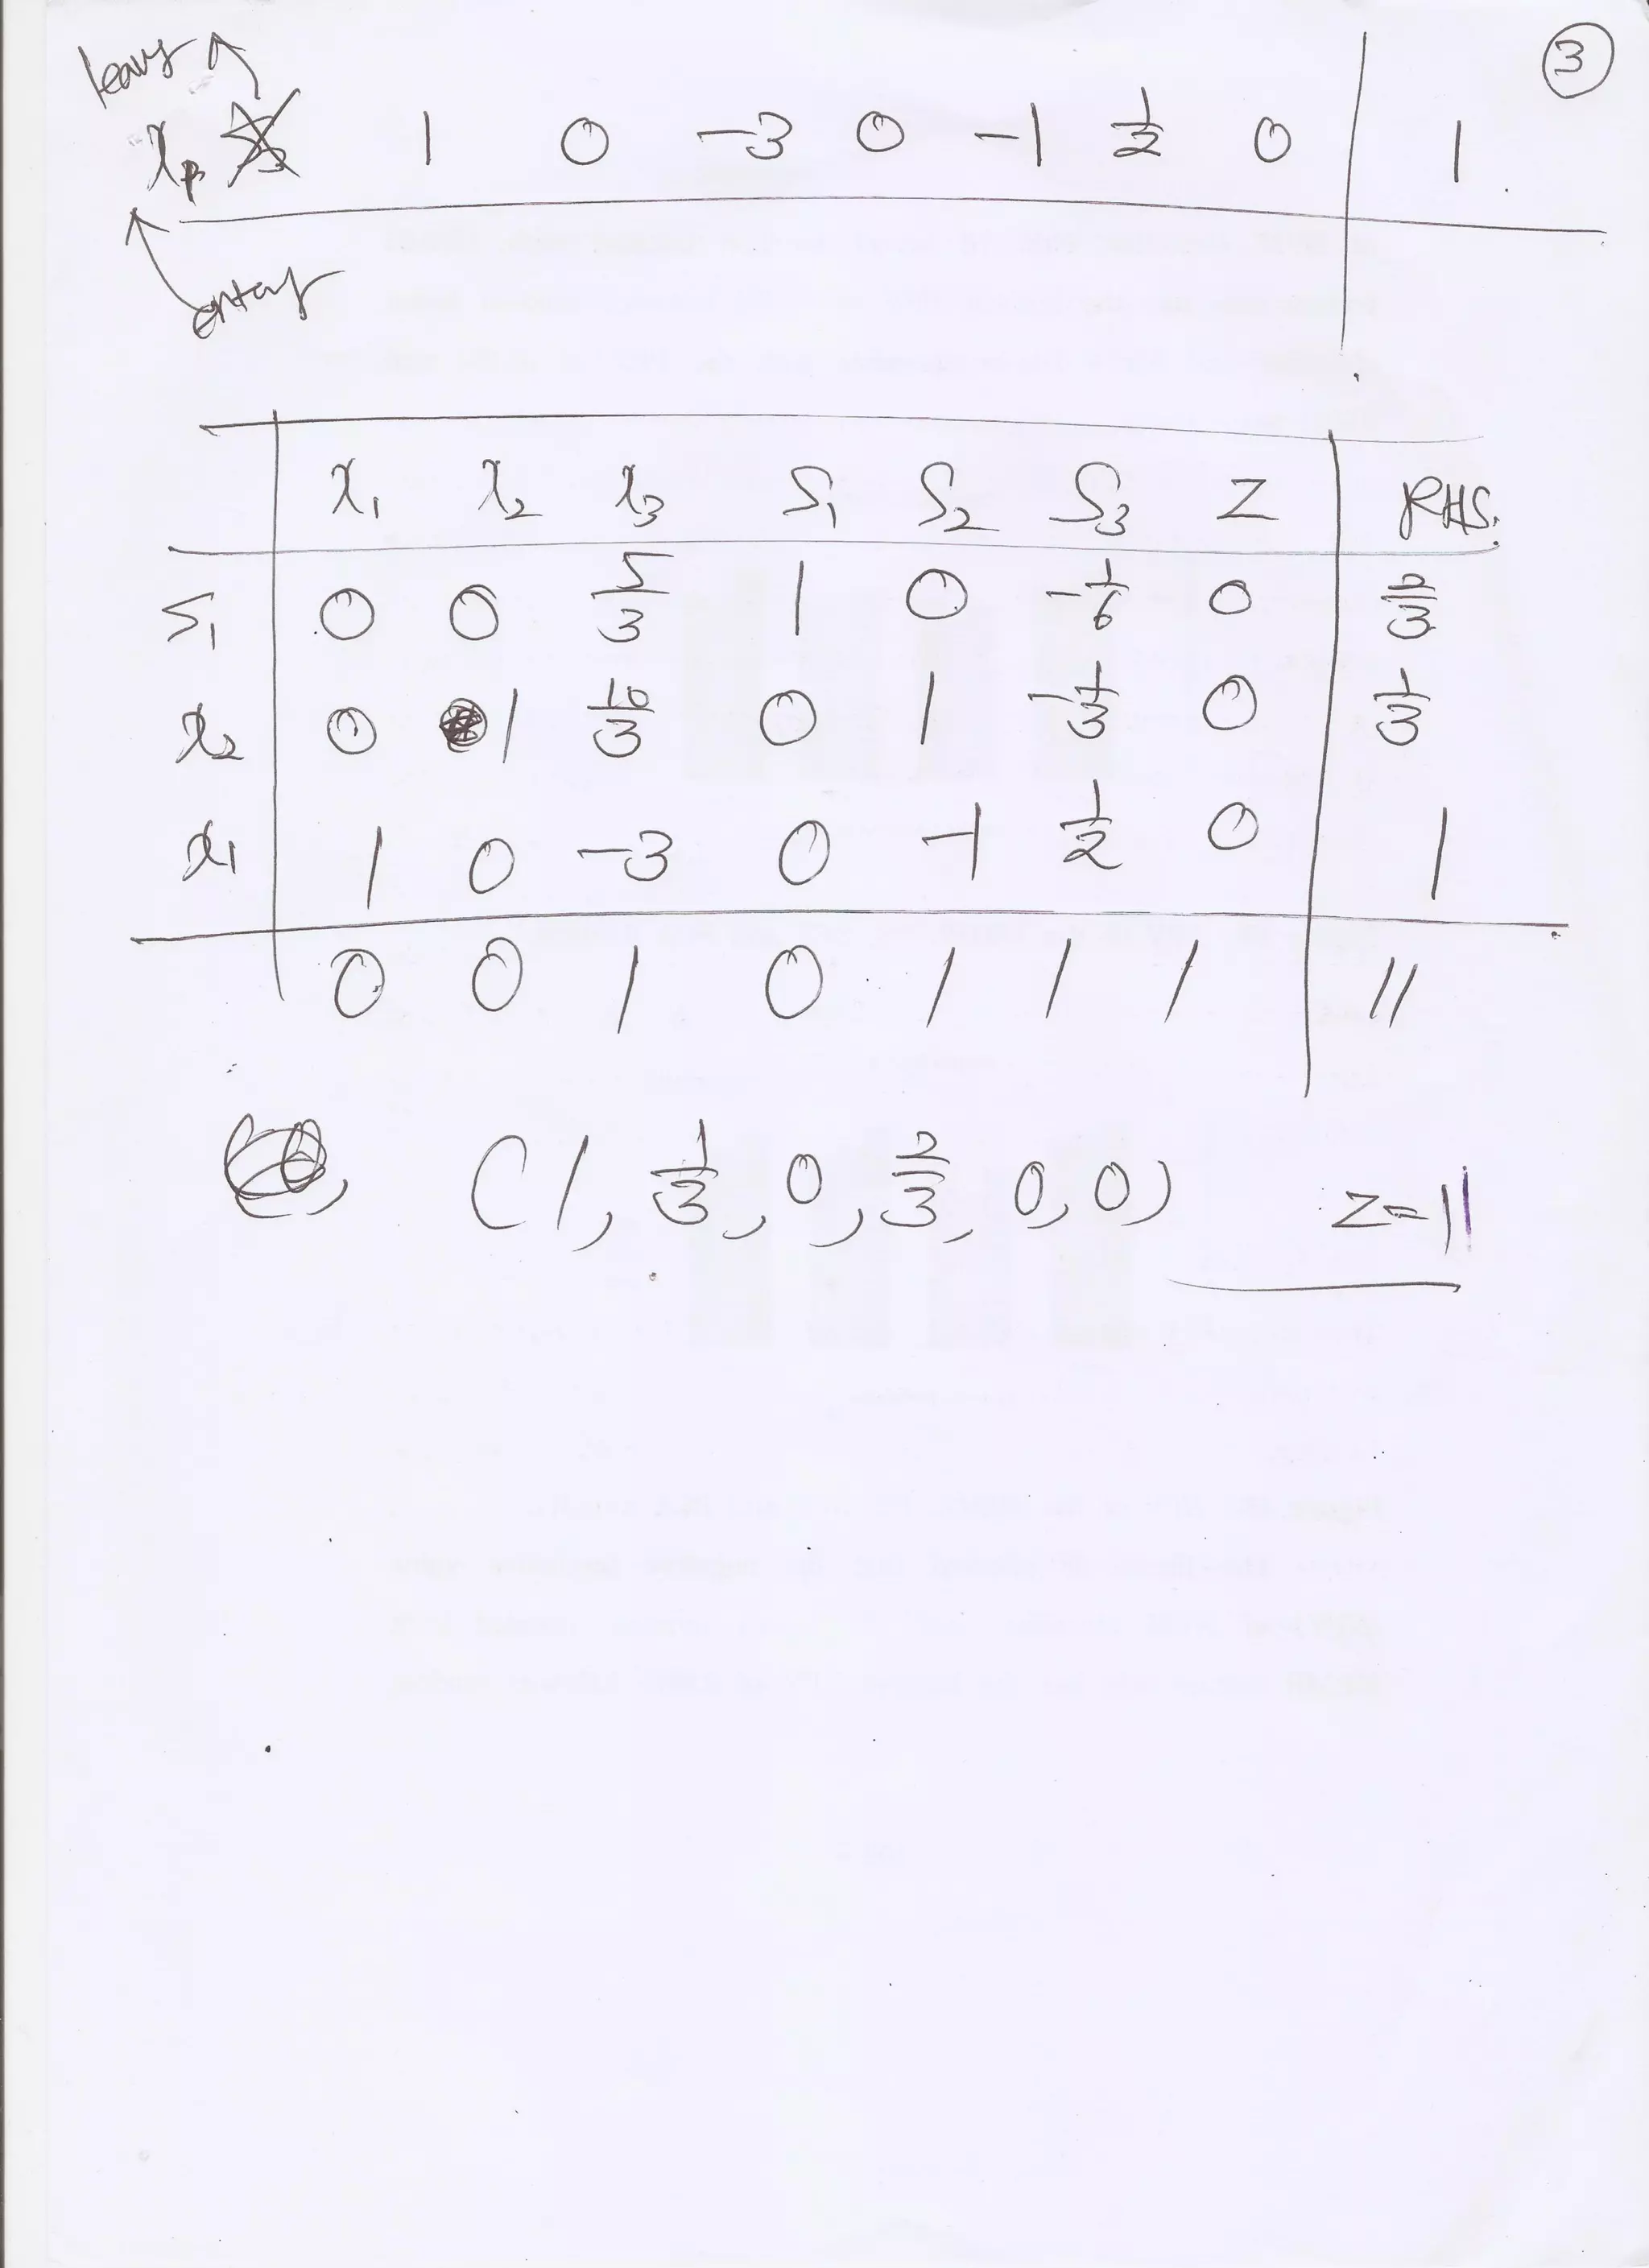 ③
leavy
1 0 -3 0 -1 1/2 0 1
x₁ x₂ x₃ S₁ S₂ S₃ Z RHS.
S₁ 0 0 5/3 1 0 -1/6 0 2/3
x₂ 0 1 10/3 0 1 -1/3 0 1/3
x₁ 1 0 -3 0 -1 1/2 0 1
0 0 1 0 1 1 1 11
(1, 1/3, 0, 2/3, 0, 0) Z=11